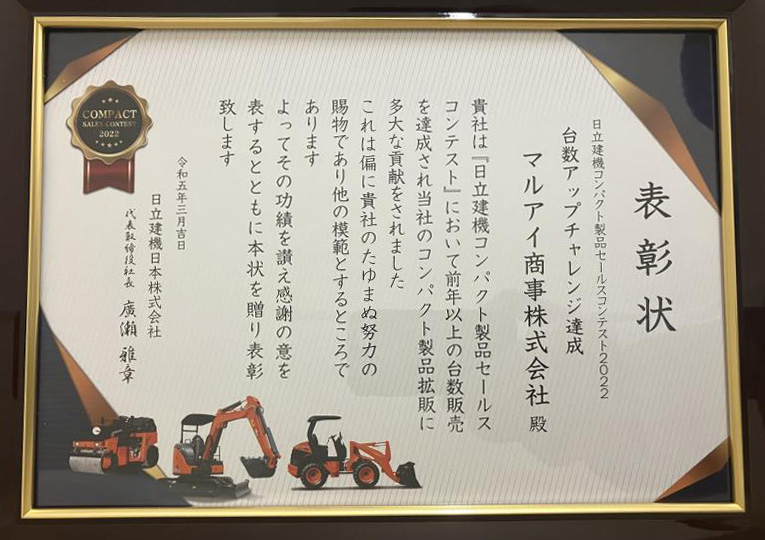 表彰状
日立建機コンパクト製品セールスコンテスト2022
台数アップチャレンジ達成
マルアイ商事株式会社 殿
貴社は『日立建機コンパクト製品セールス
コンテスト』において前年以上の台数販売
を達成され当社のコンパクト製品拡販に
多大な貢献をされました
これは偏に貴社のたゆまぬ努力の
賜物であり他の模範とするところで
あります
よってその功績を讃え感謝の意を
表するとともに本状を贈り表彰
致します
令和五年三月吉日
日立建機日本株式会社
代表取締役社長 廣瀬 雅章
COMPACT
SALES CONTEST
2022